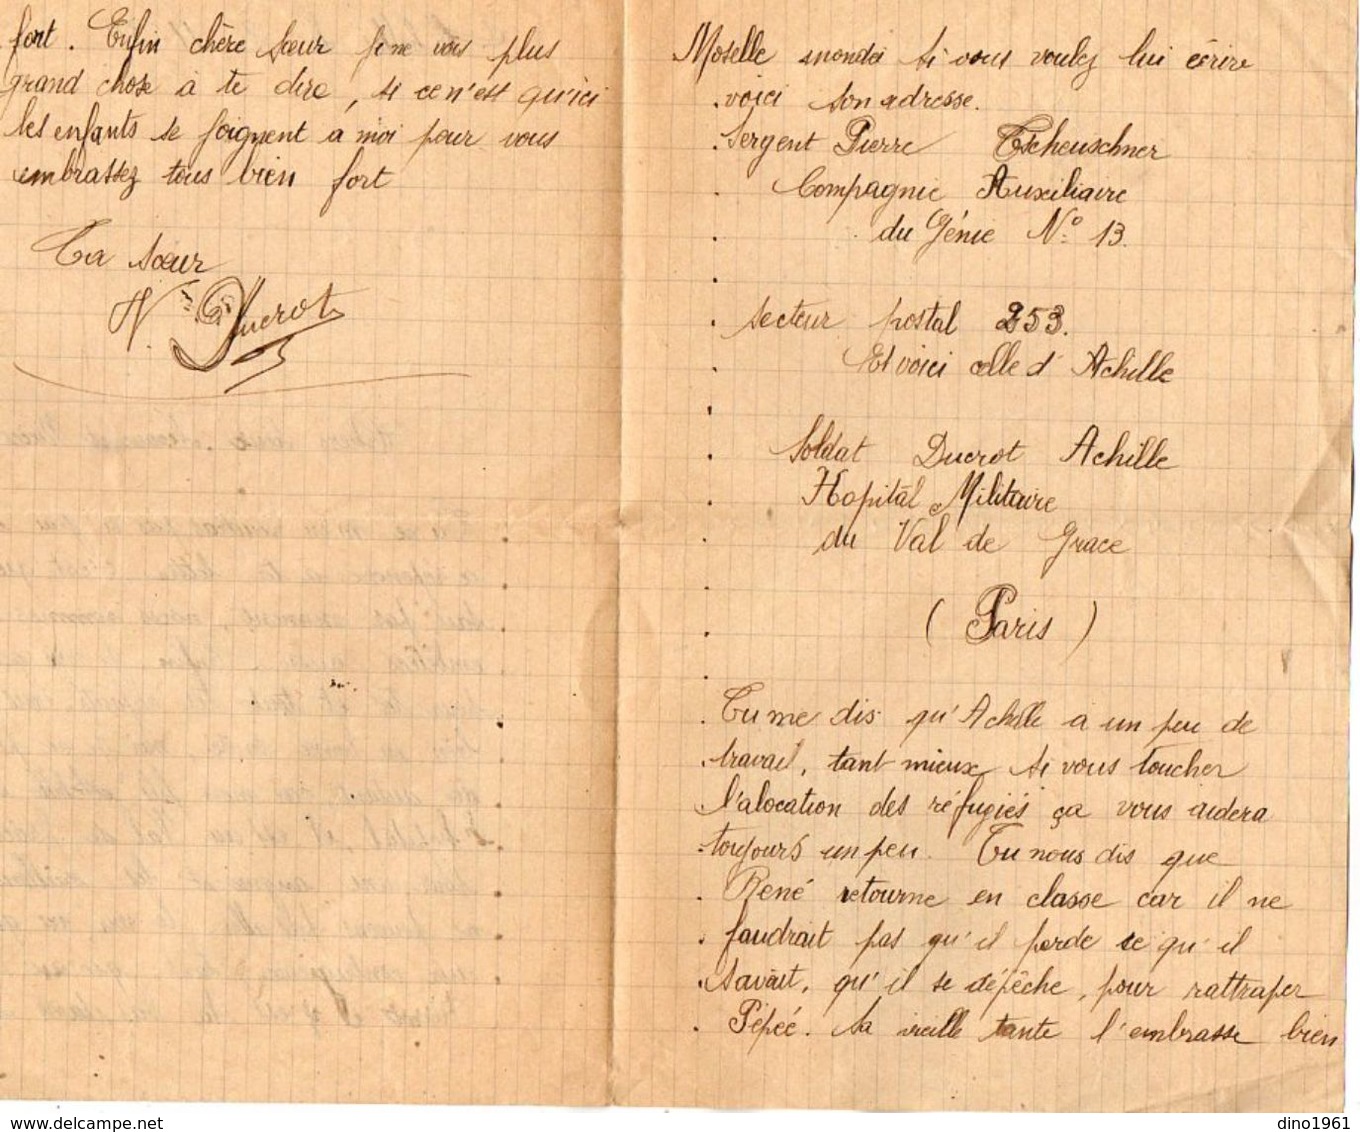 fort. Enfin chère Sœur je ne vois plus
grand chose à te dire, si ce n'est qu'ici
les enfants se joignent a moi pour vous
embrassez tous bien fort
Ta sœur
Ducrot
Moselle si vous voulez lui écrire
voici son adresse.
Sergent Pierre Tscheuschner
Compagnie Auxiliaire
du Génie N° 13.
secteur postal 253.
Et voici celle d'Achille
Soldat Ducrot Achille
Hopital Militaire
du Val de Grace
(Paris)
Tu me dis qu'Achille a un peu de
travail, tant mieux si vous toucher
l'alocation des réfugiés ça vous aidera
toujours un peu. Tu nous dis que
René retourne en classe car il ne
faudrait pas qu'il perde se qu'il
savait, qu'il se dépêche, pour rattraper
Pépée. Sa vieille tante l'embrasse bien
dino1961